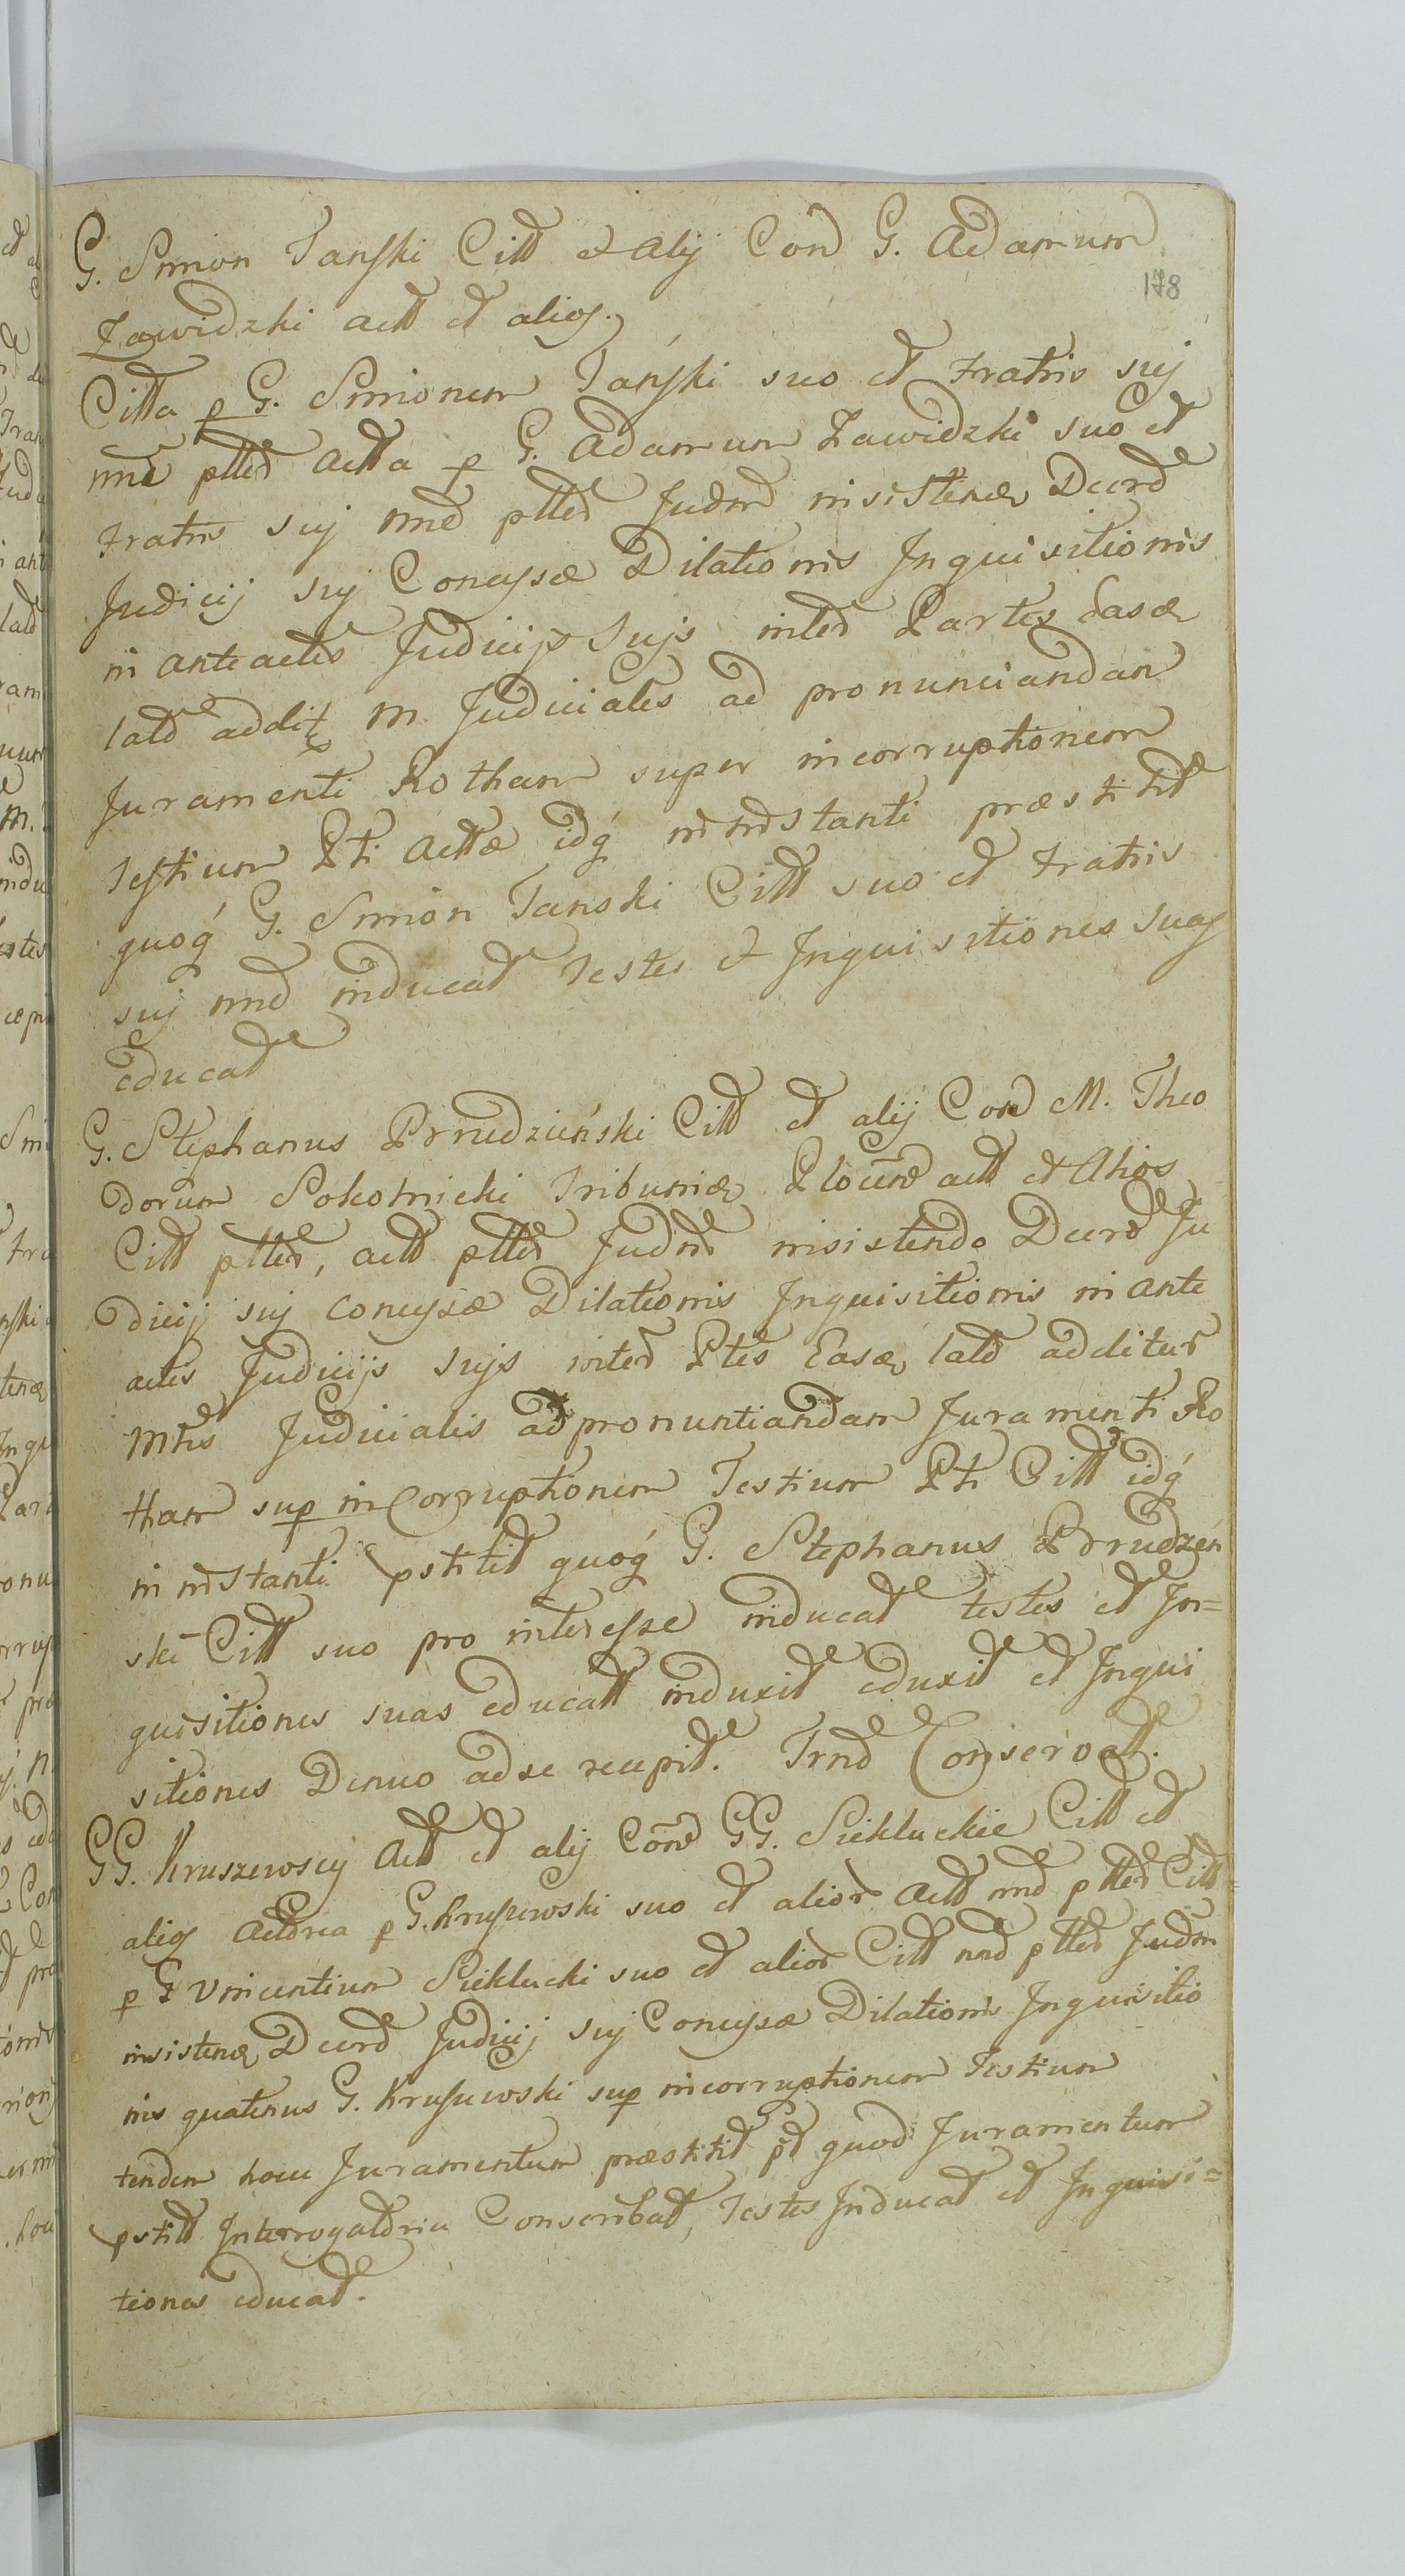 G. Simon Tanski Citt et alij Con G. Adamum
178
Zawidzki act et alios.
Citta p G. Simonem Tański suo et Fratris suj
nne ptter Acta p G. Adamum Zawidzki suo et
Fratris suj nne ptter Judm insistend Decre
Judicij suj Concysæ Dilationis Inquisitionis
in anteactis Judicijs Sujs inter Partes easd
lato additr M. Judicialis ad pronunciandan
Juramenti Rotham super incorruptionem
Testium Pti Acttæ idq in instanti præstitit
quoq G. Simon Tanski Citt suo et Fratris
suj nne inducat Testes et Inquisitiones suas
educat
G. Stephanus Prrudzieński Citt et alij Con M. Theo
dorum Sokolnicki Tribunid Plocen act et Alios
Citt ptter, act ptter Judm insistendo Decre Ju
dicij suj concysæ Dilationis Inquisitionis in ante
actis Judicijs sujs inter Ptes Easd lato additur
Mtris Judicialis ad pronuntiandam Juramenti Ro
tham sup inCorruptionem Testium Pti Citt idq
in instanti pstitit quoq G. Stephanus Prrudzeń
ski Citt suo pro interesse inducat testes et In=
quisitiones suas educatt induxit eduxit et Inqui
sitiones Denuo ad se recepit. Trnd Conservat.
GG. Kruszewscy Act et alij Con GG. Siekluckie Citt et
alios Actorea p G. Kruszewski suo et alior Act nne ptter Citt=
p G Vincentium Sieklucki suo et alior Citt nne ptter Judm
insistend Decre Judicij suj Concysæ Dilationis Inquisitio
nis quatenus G. Kruszewski sup incorruptionem Testium
tendem hocce Juramentum præstitit pt quod Juramentum
pstitt Interrogatoria Conscribat, Testes Inducat et Inquisi=
tiones educat.